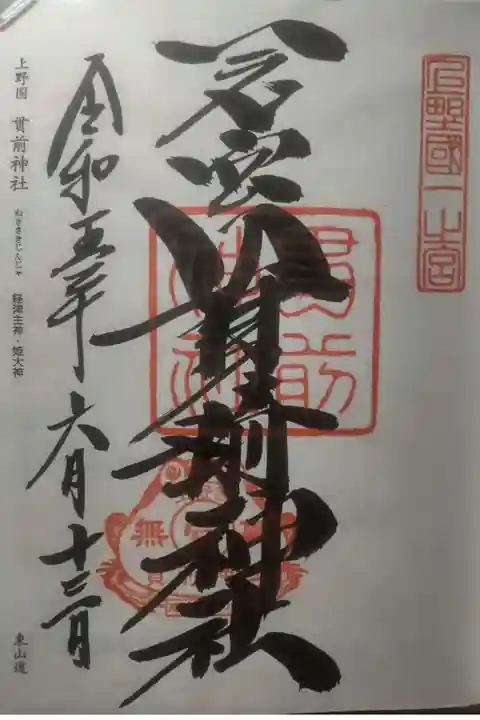 上野國一之宮
一之宮
貫前神社
貫前神社
無
令和五年六月十三日
上野国 貫前神社 ぬきさきじんじゃ 経津主神・姫大神
東山道